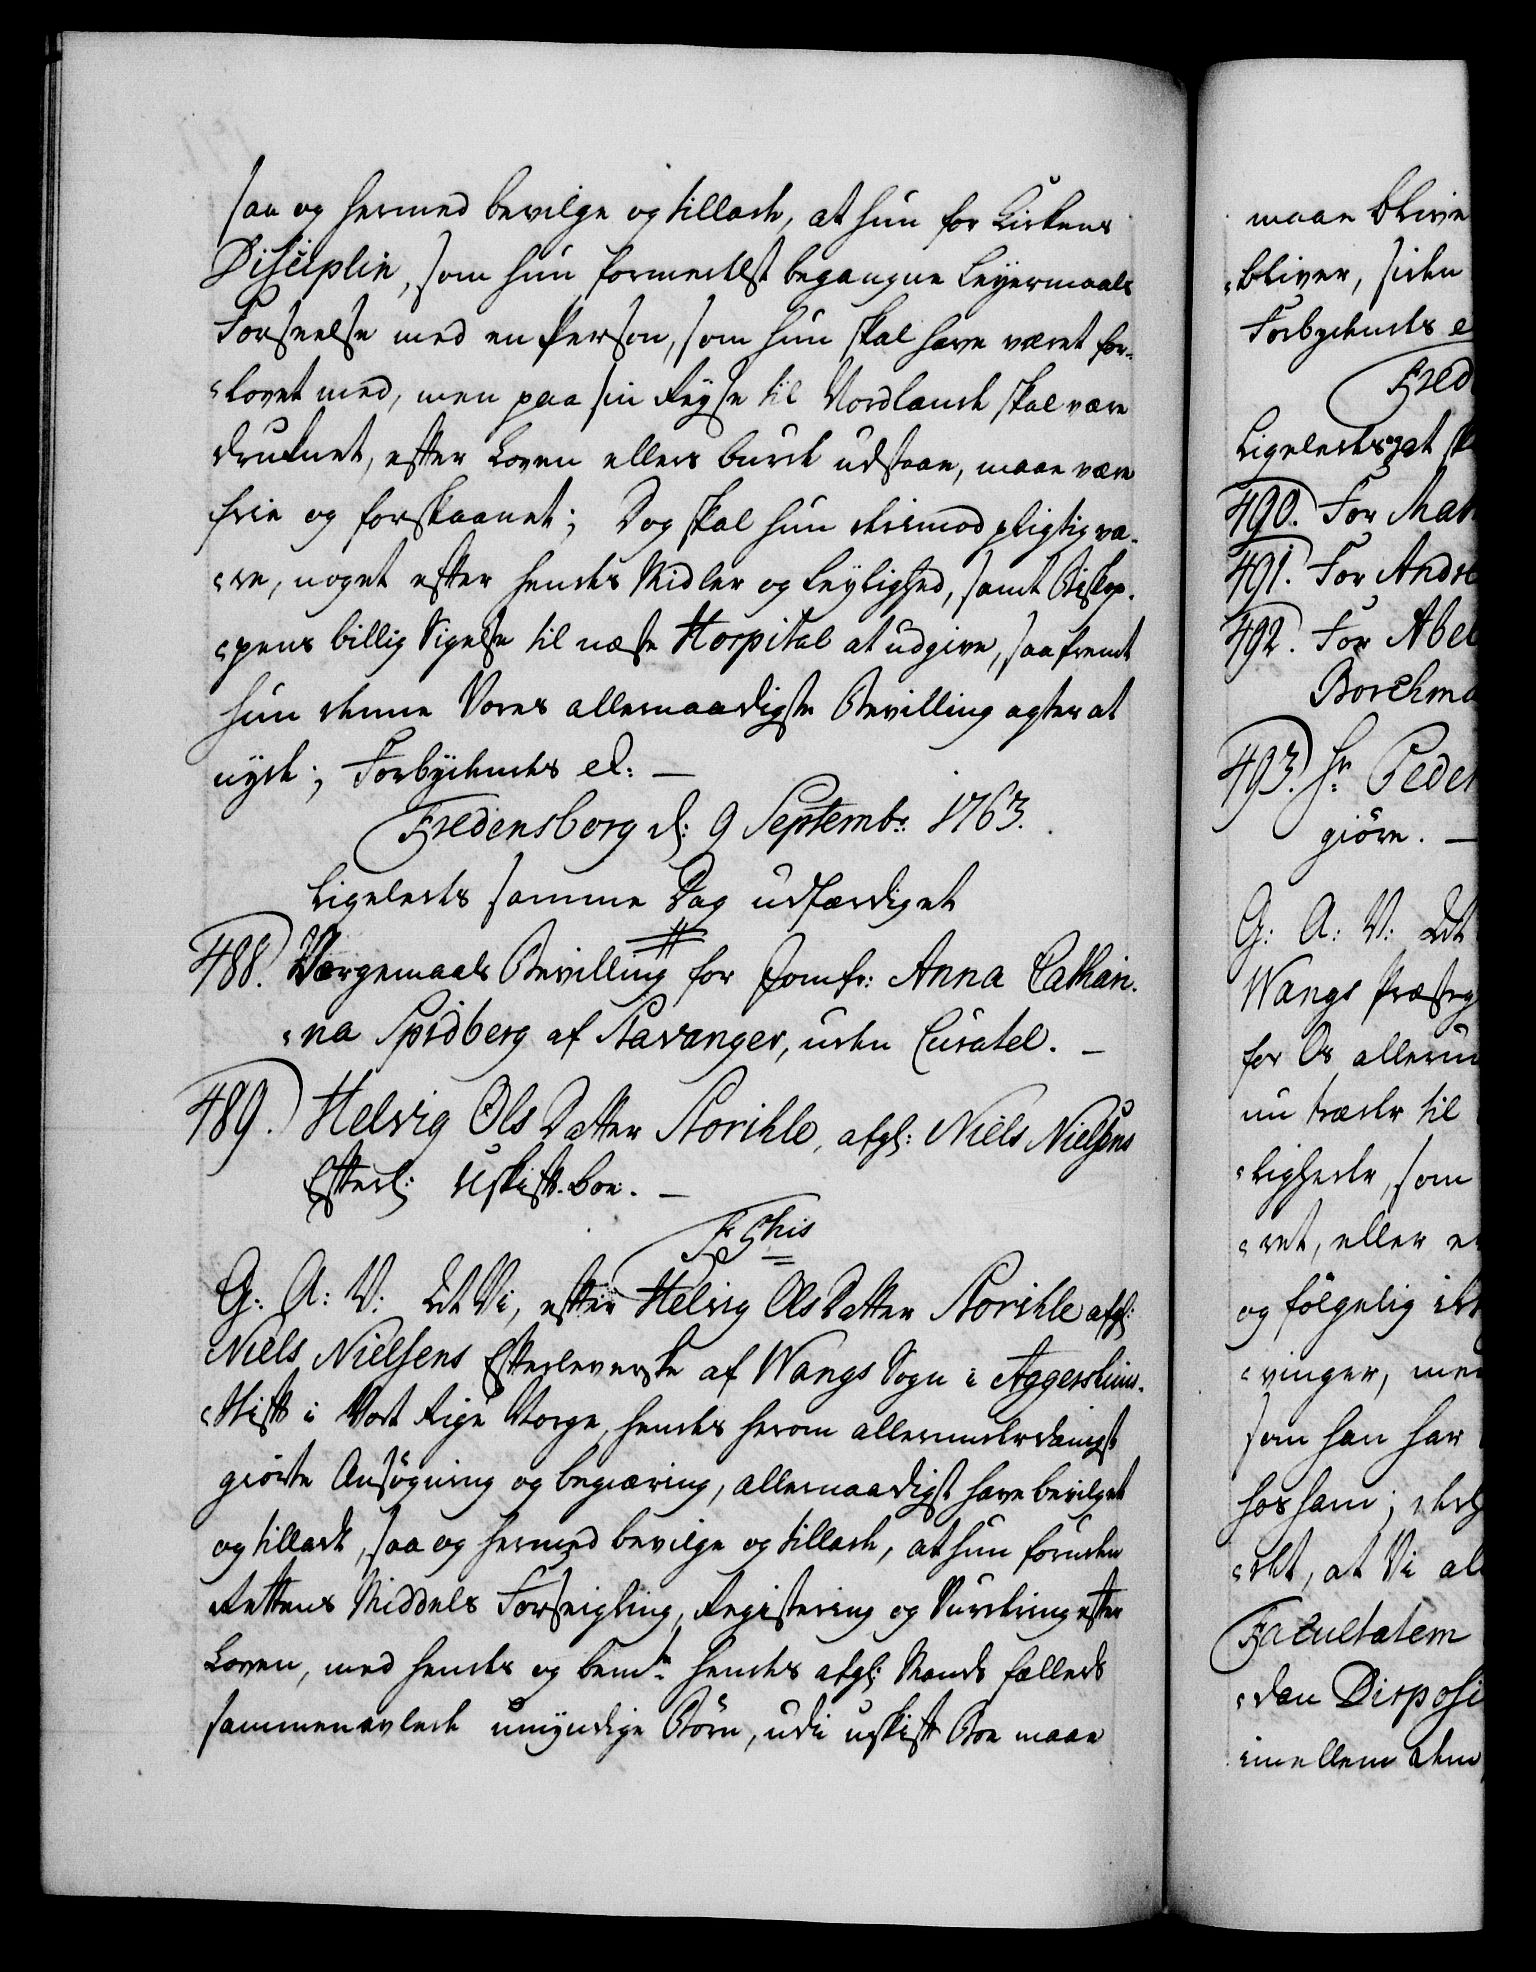 saa og hermed bevilge og tillade, at hun for Kirkens
Disciplin, som hun formedelst begangne Leyermaals
Forseelse med en Person, som hun skal have været for-
lovet med, men paa sin Reyse til Nordland skal være
druknet, efter Loven ellers burde udstaae, maae være
frie og forskaanet; Dog skal hun derimod pligtig væ-
re, noget efter hendes Midler og Leylighed, samt Biskop-
pens billig Sigelse til næste Hospital at udgive, saafremt
hun denne Vores allernaadigste Bevilling agter at
nyde; Forbydendes etc: —
Fredensborg d: 9 Septembr: 1763.
Ligeledes samme Dag udfærdiget
488. Værgemaals Bevilling for Jomfr: Anna Cathari-
na Spidberg af Stavanger, uden Curatel. —
489. Helvig Ols Datter Storihle, afgl: Niels Nielsens
Efterl: Uskift. Boe. —
F 5this
G: A: V: At Vi, efter Helvig Ols Datter Storihle afgl:
Niels Nielsens Efterleverske af Wangs Sogn i Aggershuus-
Stift i Vort Rige Norge, hendes herom allerunderdanigst
giorte Ansøgning og begiæring, allernaadigst have bevilget
og tilladt, saa og hermed bevilge og tillade, at hun foruden
Rettens Middels Forseigling, Registering og Vurdering efter
Loven, med hendes og bemte hendes afgl: Mands fælleds
sammenavlede umyndige Børn, udi uskift Boe maae
maae blive
bliver, siden
Forbydendes e
Fred
Ligeledes at sk
490. For Mat
491. For Andre
492. For Abel
Borchma
493. Hr Peder
giøre. —
G: A: V: At
Wangs Præsteg
for Os allerun
nu træder til
lighede, som
ret, eller e
og følgelig ik
ringer, me
som han har
hos ham; de
det, at Vi al
Facultatem
dan Disposi
imellem dem